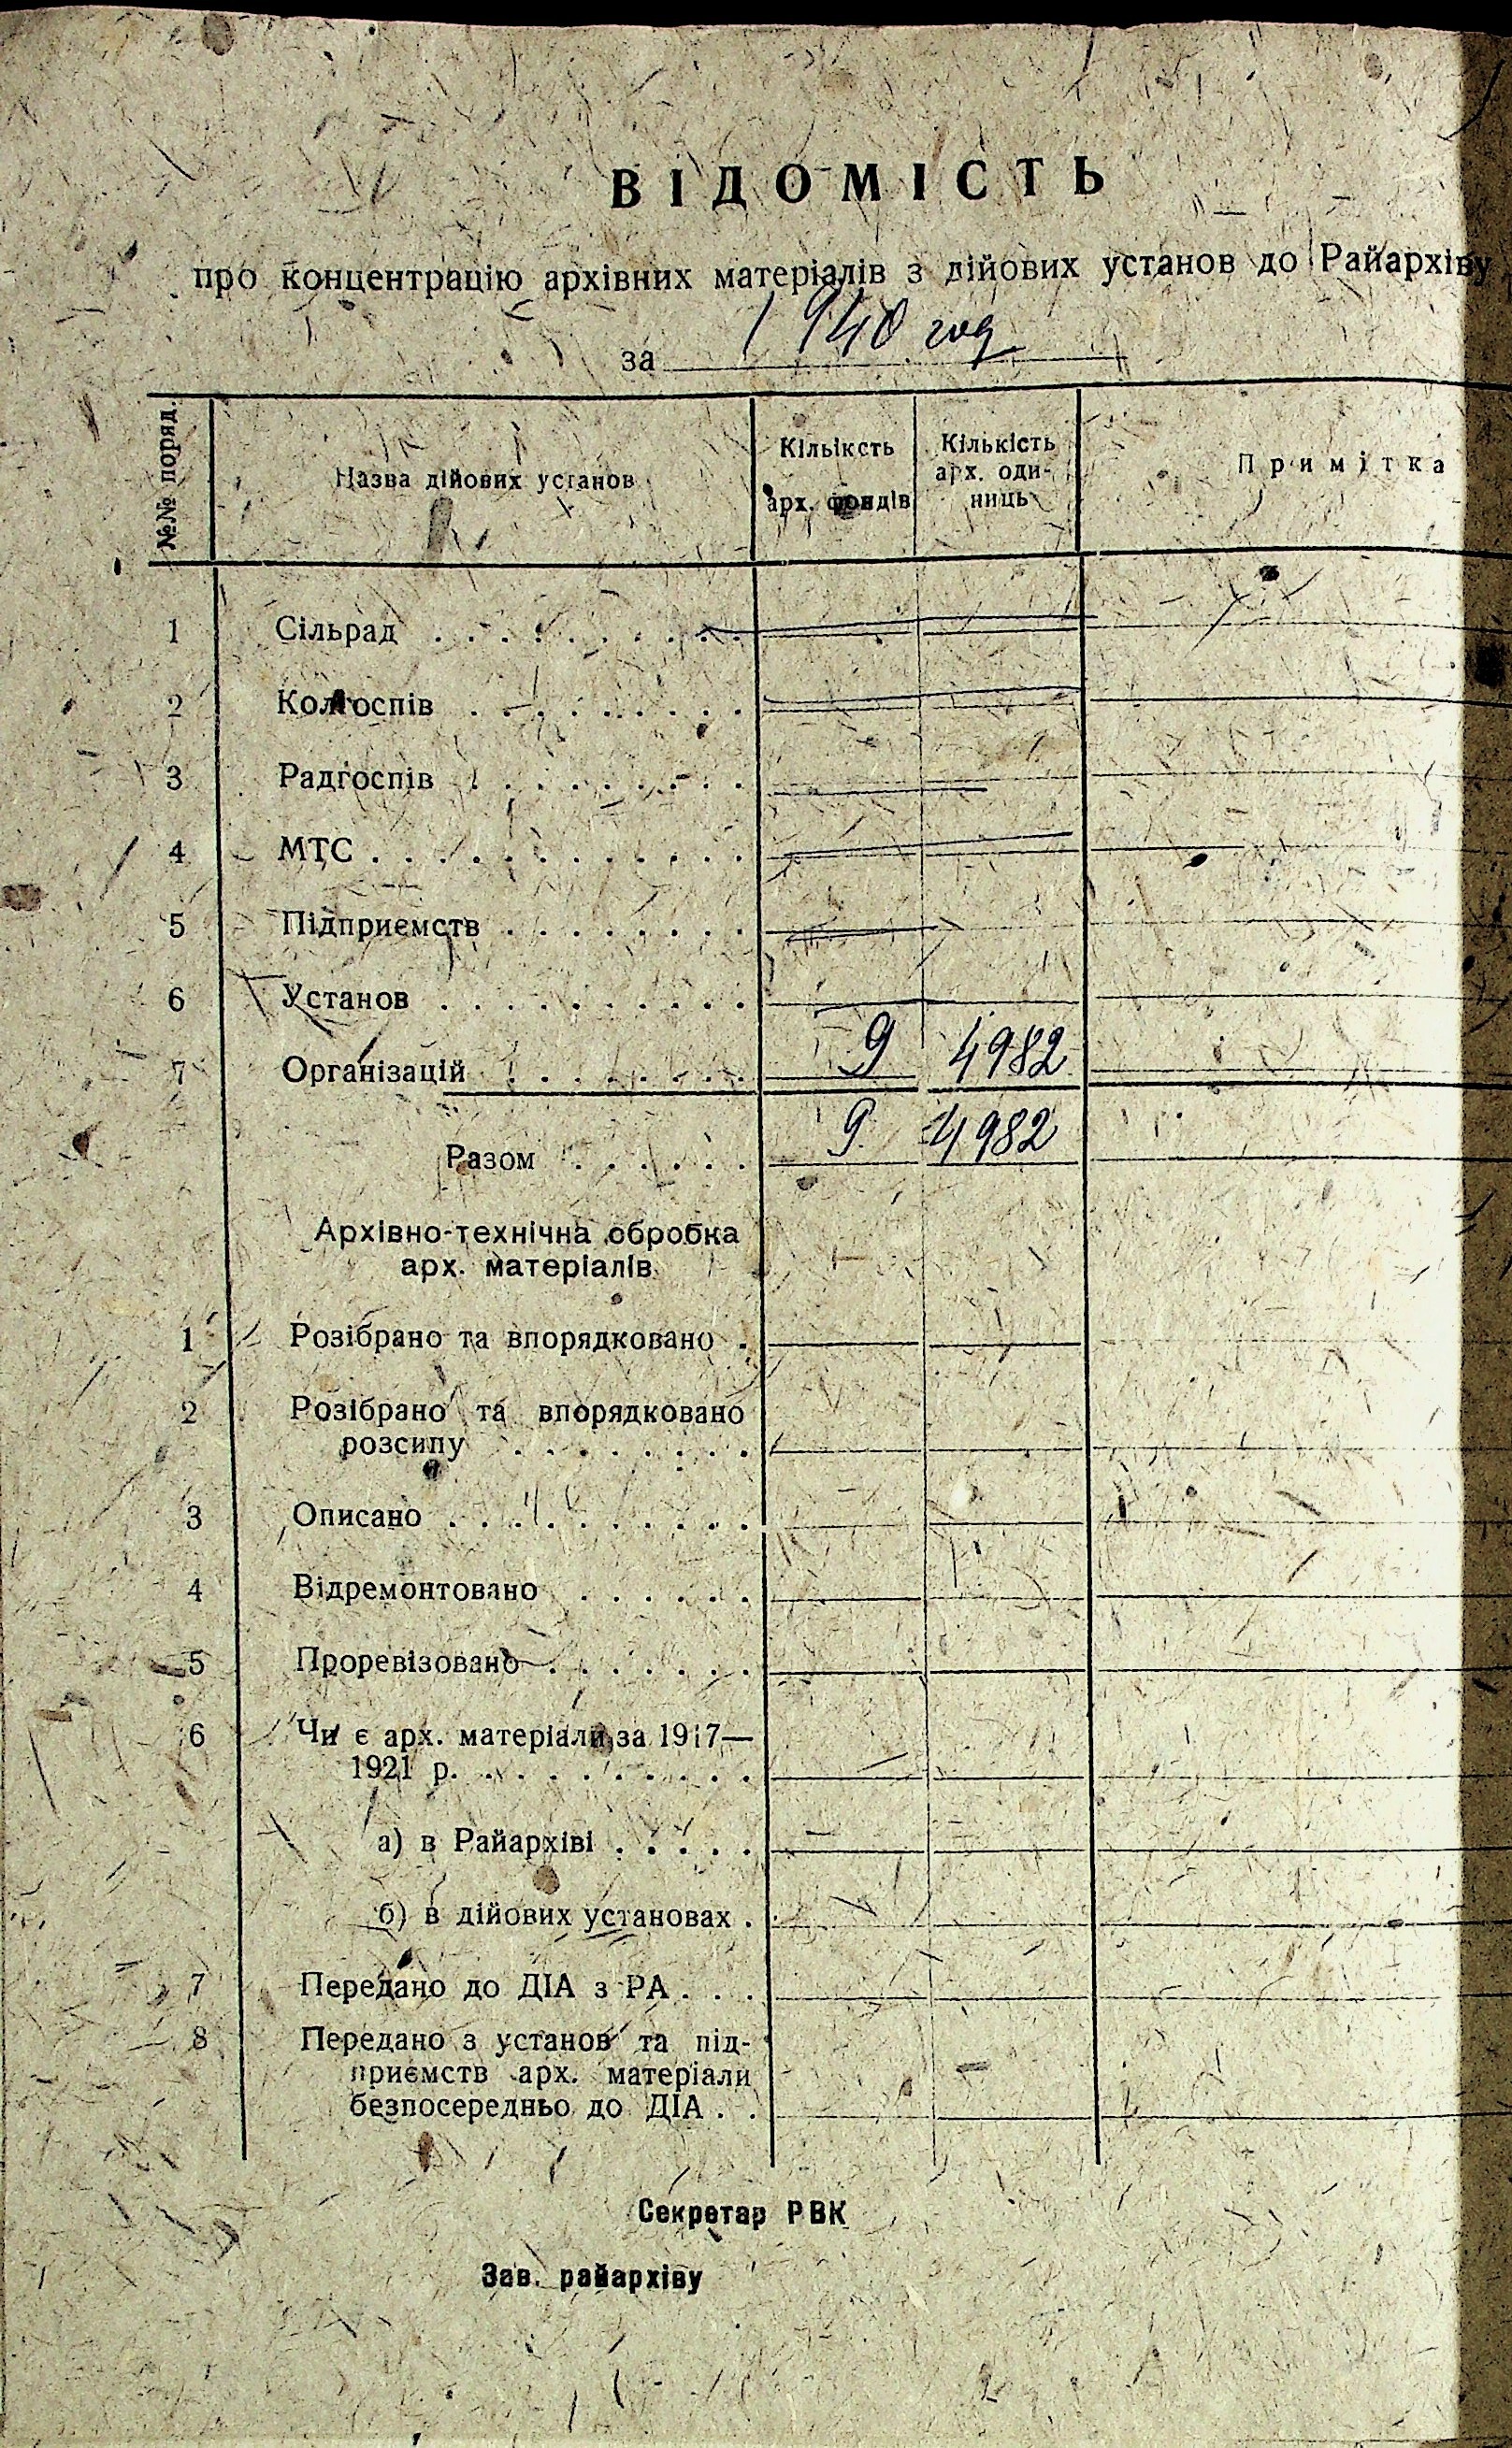 ВІДОМІСТЬ
про концентрацію архівних матеріалів з дійових установ до Райархіву
за 1940 год
№№ поряд.
Назва дійових установ
Кількість
арх. фондів
Кількість
арх. оди-
ниць
Примітка
1 Сільрад . . . . . . . . . .
2 Колгоспів . . . . . . . . .
3 Радгоспів . . . . . . . . .
4 МТС . . . . . . . . . . . .
5 Підприємств . . . . . . . .
6 Установ . . . . . . . . . .
7 Організацій . . . . . . . . 9 4982
Разом . . . . . . 9 4982
Архівно-технічна обробка
арх. матеріалів
1 Розібрано та впорядковано .
2 Розібрано та впорядковано
розсипу . . . . . . . .
3 Описано . . . . . . . . . .
4 Відремонтовано . . . . . .
5 Проревізовано . . . . . . .
6 Чи є арх. матеріали за 1917—
1921 р. . . . . . . . . .
а) в Райархіві . . . . .
б) в дійових установах .
7 Передано до ДІА з РА . . .
8 Передано з установ та під-
приємств арх. матеріали
безпосередньо до ДІА . .
Секретар РВК
Зав. райархіву